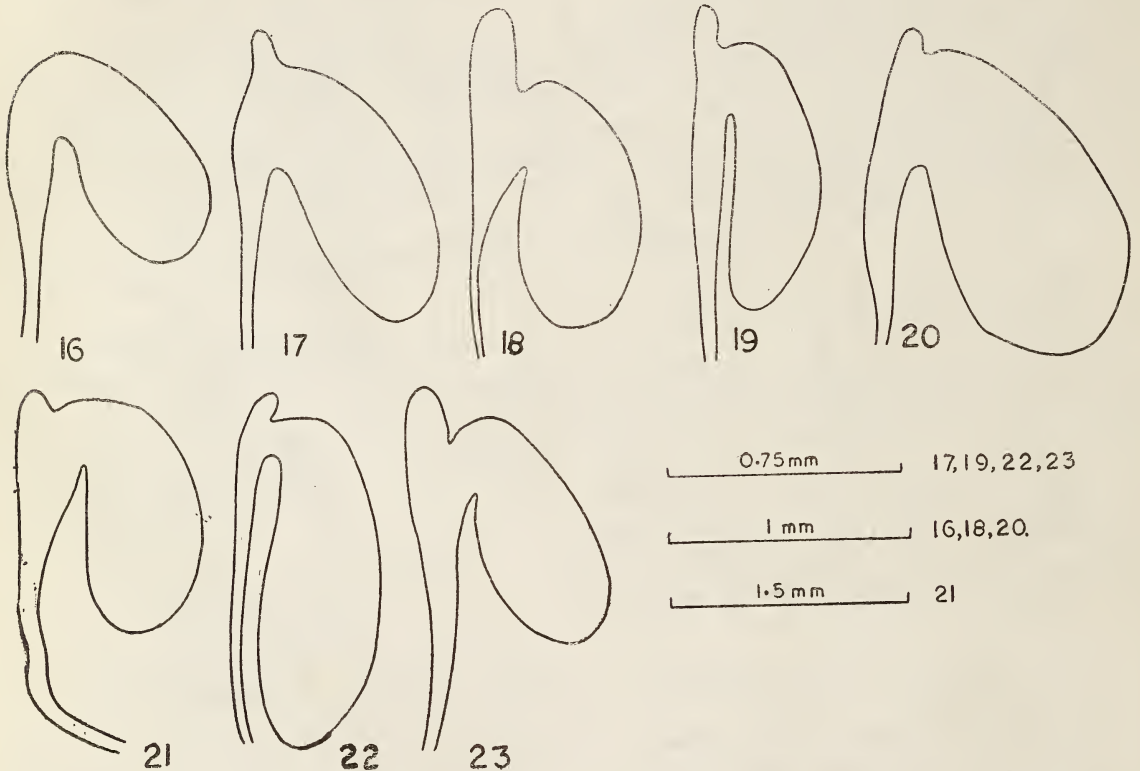 16 17 18 19 20
21 22 23
0·75mm 17,19,22,23
1 mm 16,18,20.
1·5 mm 21